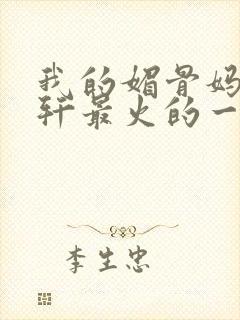 我的媚骨妈
轩最火的一
李生忠